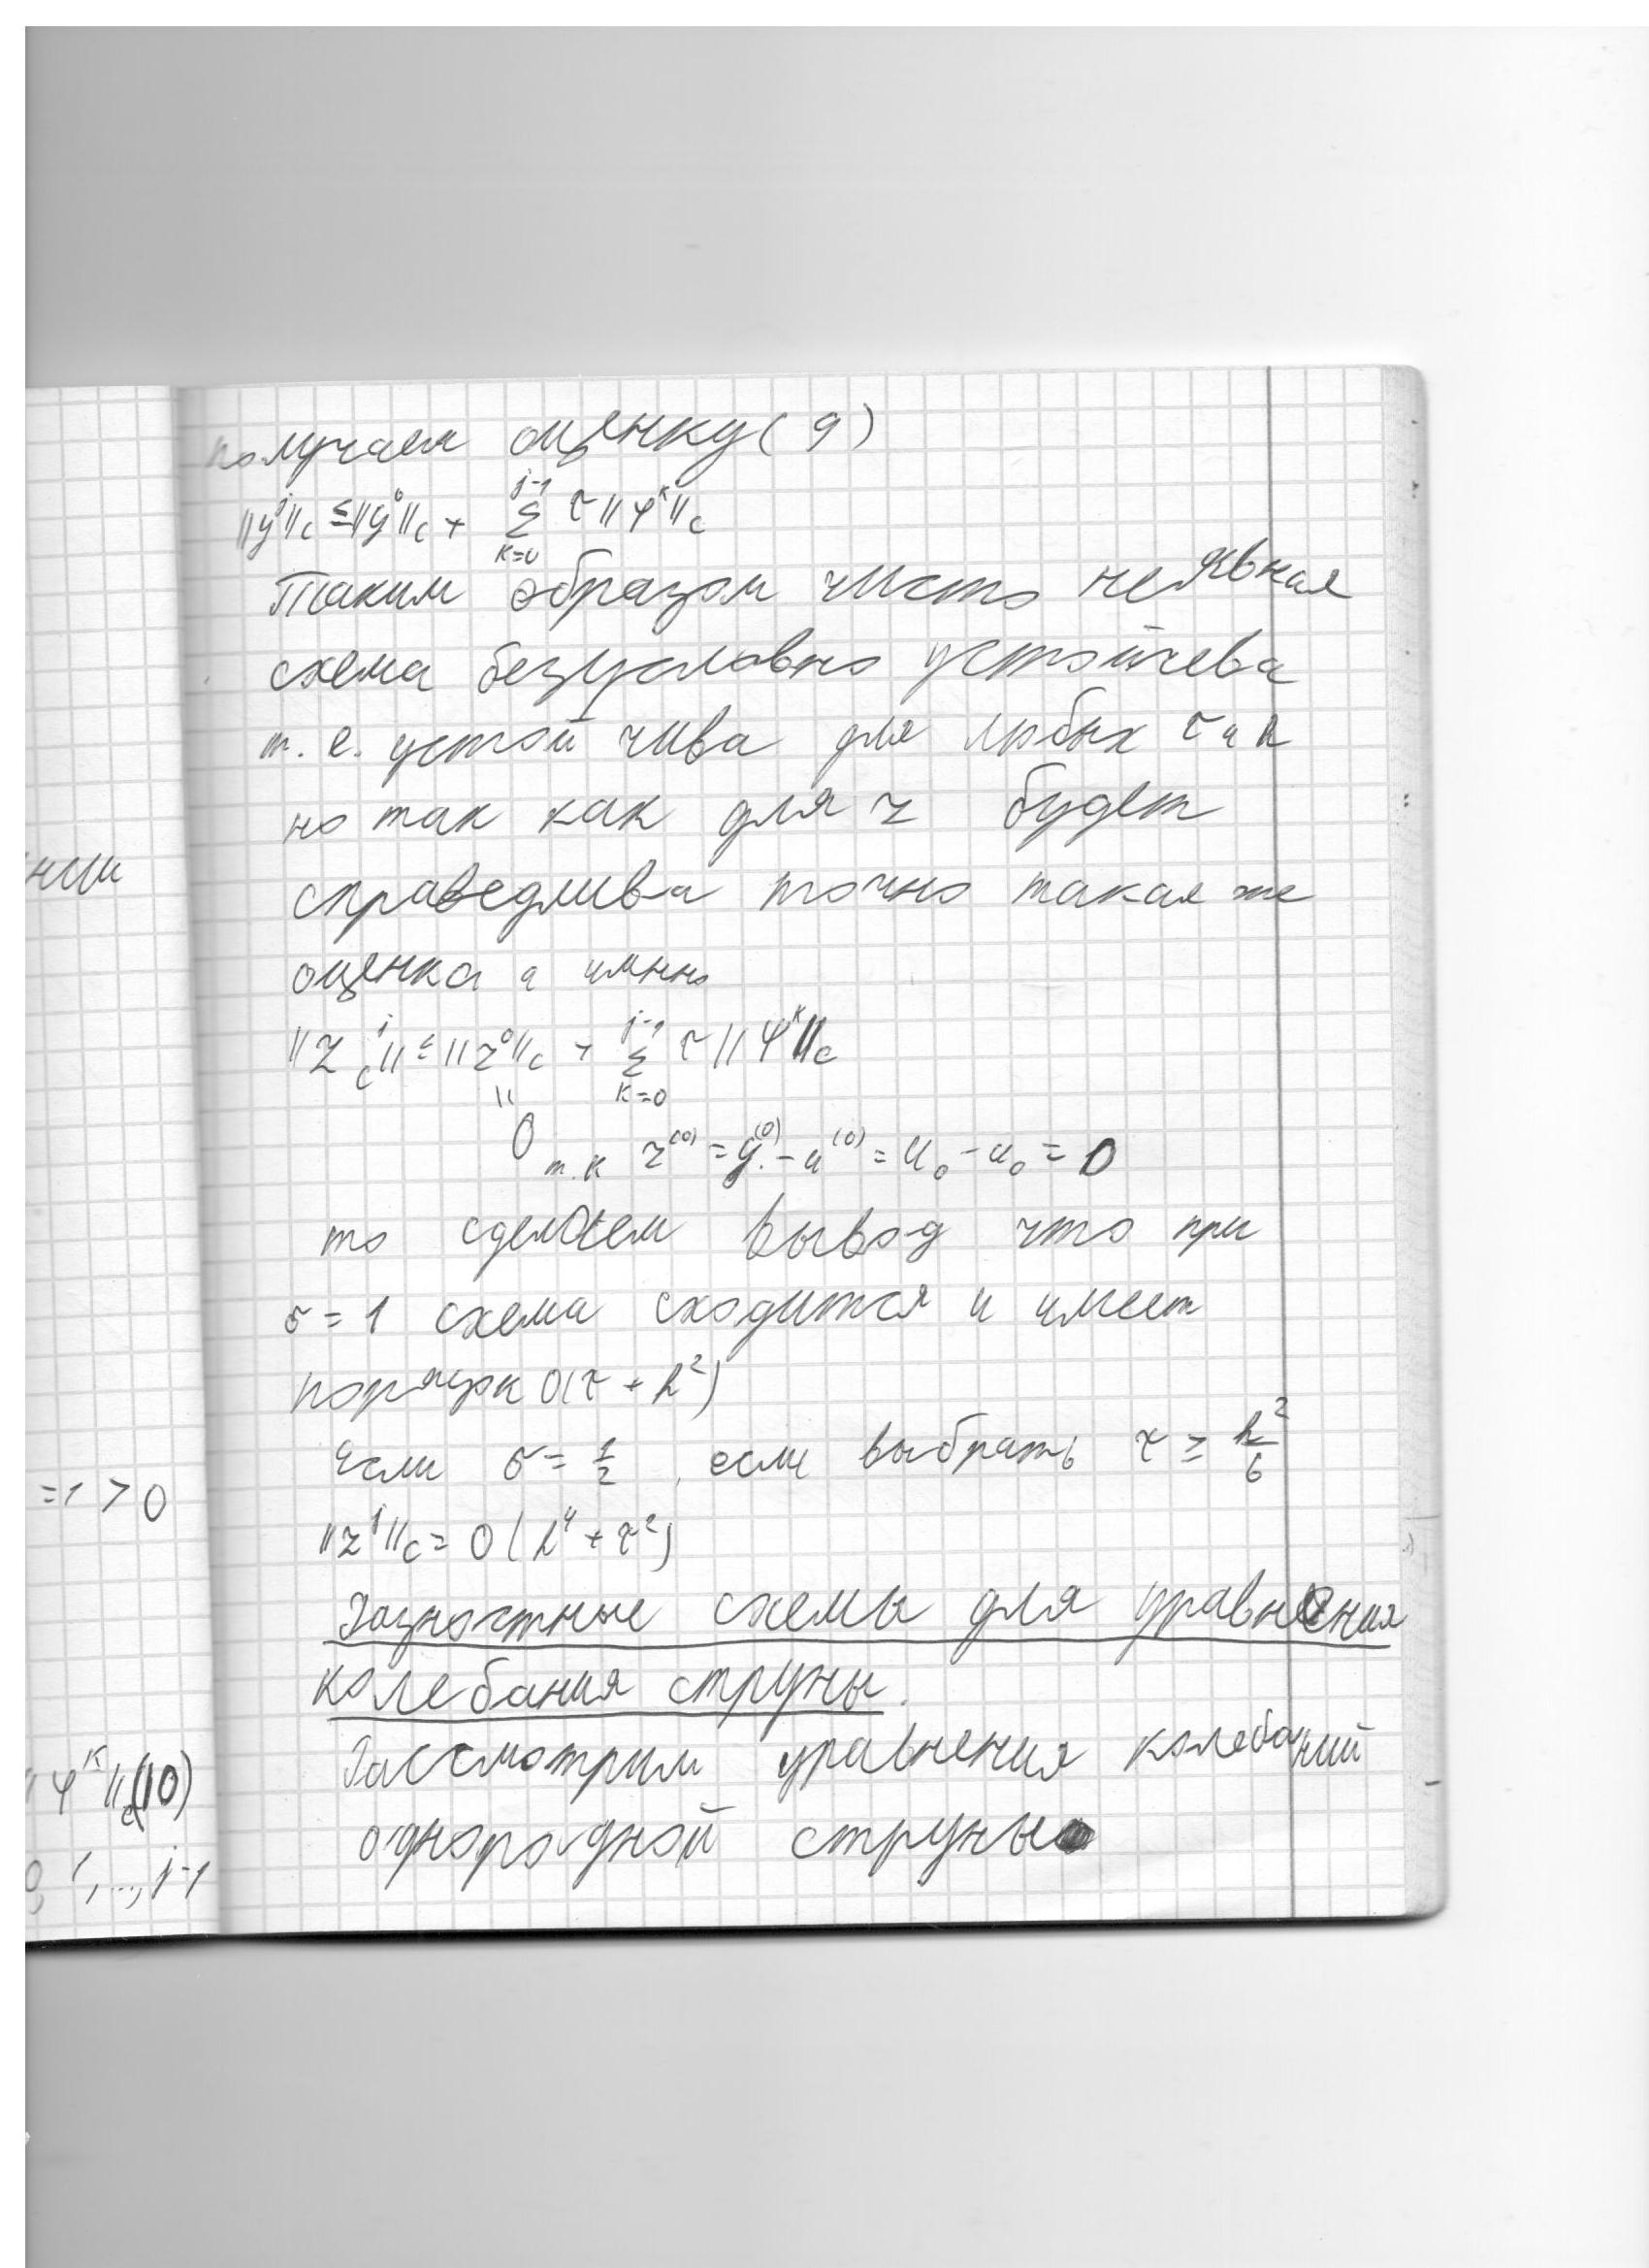 нии
=1 > 0
φᴷ||c (10)
0, 1, ..., j-1
получаем оценку (9)
||yʲ||c ≤ ||y⁰||c + Σ_{k=0}^{j-1} τ||φᵏ||c
Таким образом чисто неявная
схема безусловно устойчева
т. е. устойчива для любых τ и h
но так как для z будет
справедлива точно такая же
оценка а имнно
||zʲ||c ≤ ||z⁰||c + Σ_{k=0}^{j-1} τ||ψᵏ||c
"
0 т.к z⁽⁰⁾ = y⁽⁰⁾ - u⁽⁰⁾ = u₀ - u₀ = 0
то сделаем вывод что при
σ = 1 схема сходится и имеет
порядок O(τ + h²)
Если σ = 1/2, если выбрать τ ≥ h²/6
||zʲ||c = O(h⁴ + τ²)
Разностные схемы для уравнения
колебания струны.
Рассмотрим уравнения колебаний
однородной струны